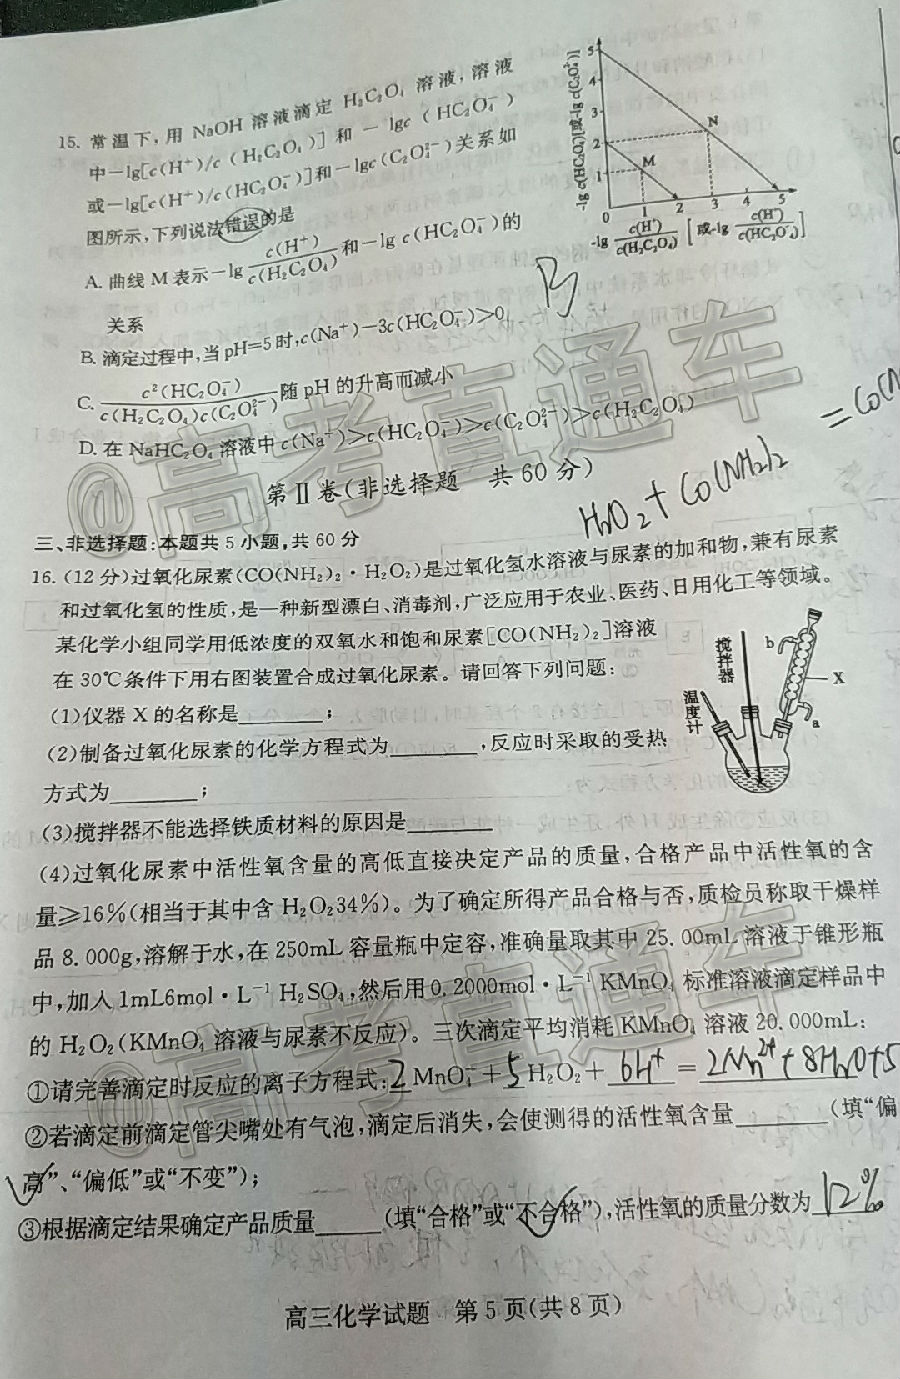 15. 常温下，用 NaOH 溶液滴定 H₂C₂O₄ 溶液，溶液
中－lg[c(H⁺)/c（H₂C₂O₄）] 和 －lgc（HC₂O₄⁻）
或－lg[c(H⁺)/c(HC₂O₄⁻)]和－lgc(C₂O₄²⁻)关系如
图所示，下列说法错误的是
A. 曲线 M 表示－lg c(H⁺)/c(H₂C₂O₄) 和－lg c(HC₂O₄⁻)的
关系
B. 滴定过程中，当 pH=5 时，c(Na⁺)－3c(HC₂O₄⁻)>0
C. c²(HC₂O₄⁻)/c(H₂C₂O₄)c(C₂O₄²⁻) 随 pH 的升高而减小
D. 在 NaHC₂O₄ 溶液中 c(Na⁺)>c(HC₂O₄⁻)>c(C₂O₄²⁻)>c(H₂C₂O₄)
-lg c(HC₂O₄⁻)[或-lg c(C₂O₄²⁻)]
5
4
3
2
1
0 1 2 3 4 5
M
N
-lg c(H⁺)/c(H₂C₂O₄) [或-lg c(H⁺)/c(HC₂O₄⁻)]
B
第Ⅱ卷(非选择题 共 60 分)
H₂O₂+CO(NH₂)₂
三、非选择题：本题共 5 小题，共 60 分
16. (12 分)过氧化尿素(CO(NH₂)₂·H₂O₂)是过氧化氢水溶液与尿素的加和物，兼有尿素
和过氧化氢的性质，是一种新型漂白、消毒剂，广泛应用于农业、医药、日用化工等领域。
某化学小组同学用低浓度的双氧水和饱和尿素[CO(NH₂)₂]溶液
在 30℃条件下用右图装置合成过氧化尿素。请回答下列问题：
(1)仪器 X 的名称是______；
(2)制备过氧化尿素的化学方程式为______，反应时采取的受热
方式为______；
搅拌器
温度计
b
X
a
(3)搅拌器不能选择铁质材料的原因是______
(4)过氧化尿素中活性氧含量的高低直接决定产品的质量，合格产品中活性氧的含
量≥16%(相当于其中含 H₂O₂34%)。为了确定所得产品合格与否，质检员称取干燥样
品 8.000g，溶解于水，在 250mL 容量瓶中定容，准确量取其中 25.00mL 溶液于锥形瓶
中，加入 1mL6mol·L⁻¹ H₂SO₄，然后用 0.2000mol·L⁻¹ KMnO₄ 标准溶液滴定样品中
的 H₂O₂(KMnO₄ 溶液与尿素不反应)。三次滴定平均消耗 KMnO₄ 溶液 20.000mL：
①请完善滴定时反应的离子方程式：2 MnO₄⁻+5 H₂O₂+ 6H⁺ = 2Mn²⁺+8H₂O+5
②若滴定前滴定管尖嘴处有气泡，滴定后消失，会使测得的活性氧含量______（填“偏
高”、“偏低”或“不变”)；
③根据滴定结果确定产品质量______(填“合格”或“不合格”)，活性氧的质量分数为 12%
高三化学试题 第 5 页(共 8 页)
@高考直通车
@高考直通车